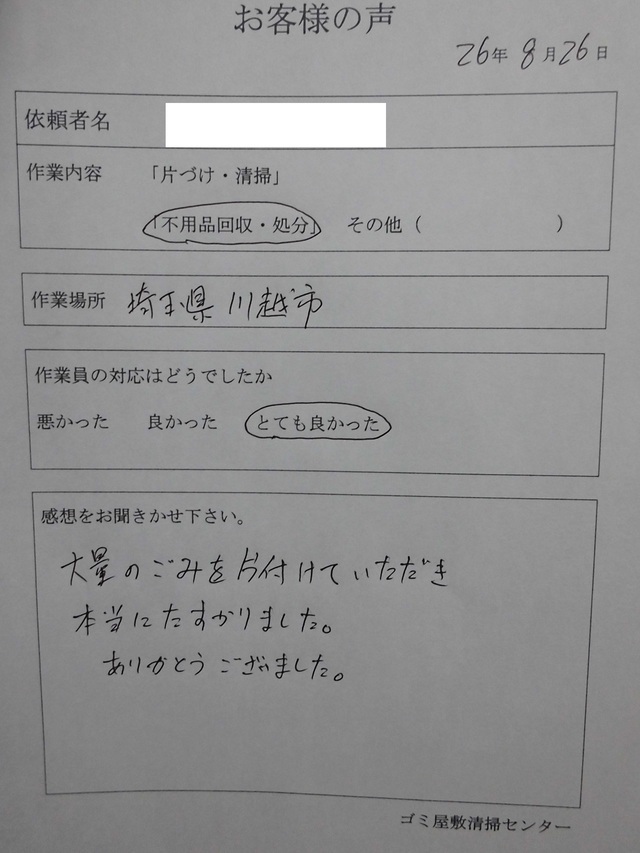 お客様の声
26年8月26日
依頼者名
作業内容 「片づけ・清掃」
「不用品回収・処分」 その他（ ）
作業場所 埼玉県川越市
作業員の対応はどうでしたか
悪かった 良かった とても良かった
感想をお聞きかせ下さい。
大量のごみを片付けていただき
本当にたすかりました。
ありがとうございました。
ゴミ屋敷清掃センター